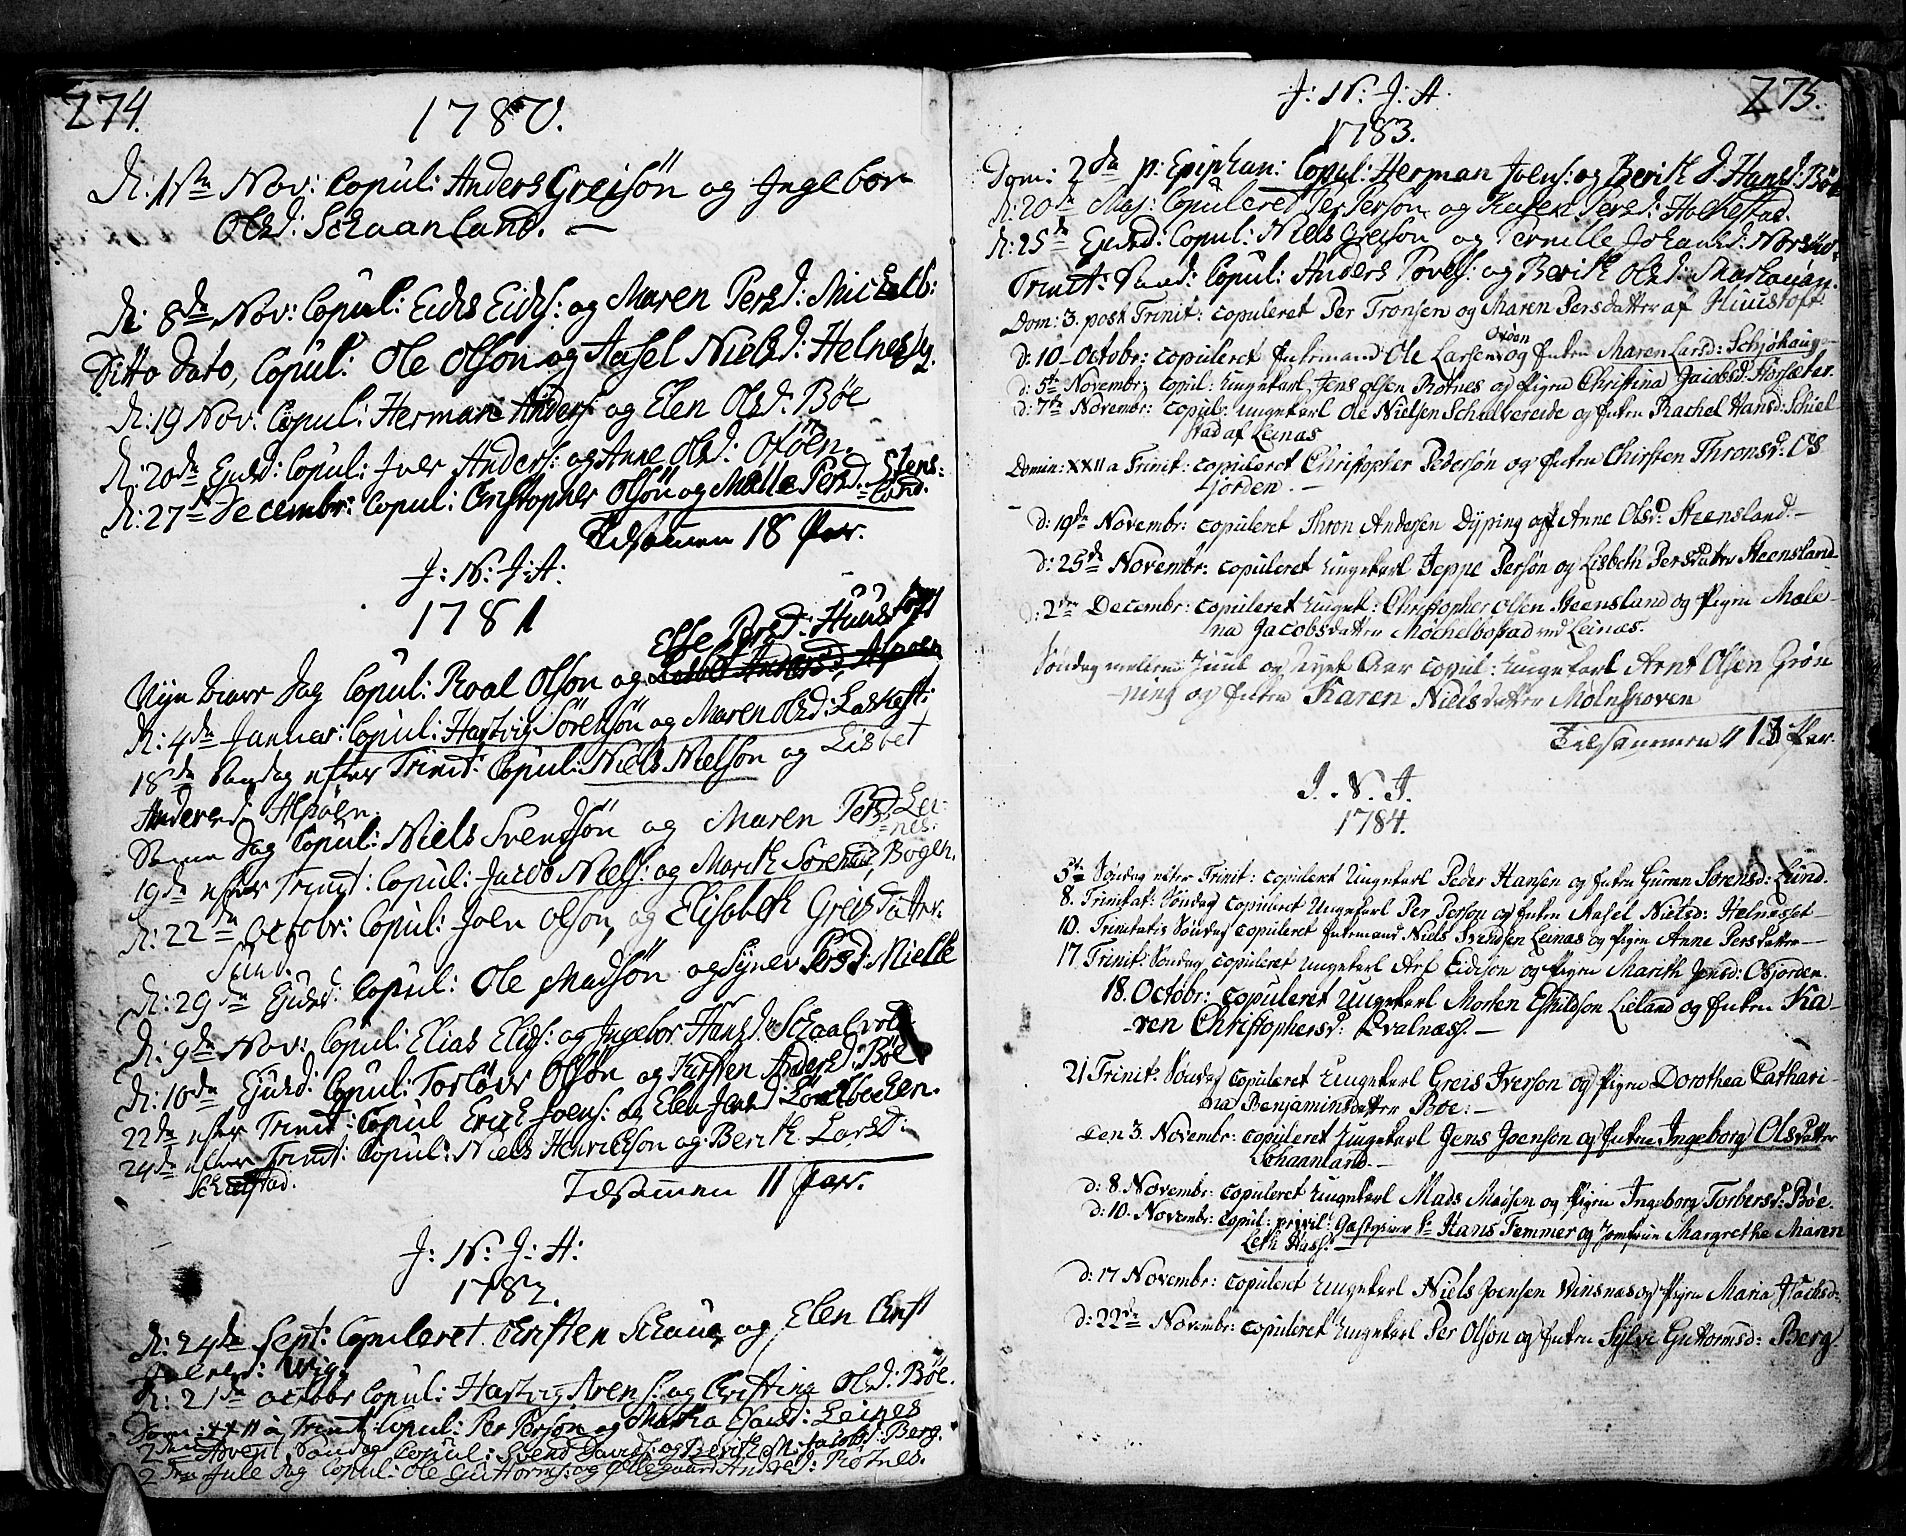 274.
1780.
D: 1ste Nov: Copul: Anders Greisön og Ingebor
Olsd: Schaanland. —
D: 8de Nov: Copul: Eides Eids: og Maren Persd: Michelb:
Ditto Dato, Copul: Ole Olsön og Aasel Nielsd: Helness
D: 19 Nov: Copul: Herman Anders: og Elen Olsd: Böe
D: 20de Ejusd: Copul: Iver Anders: og Anne Olsd: Oxöen.
D: 27de Decembr: Copul: Christopher Olsön og Malle Persd. Stens-
=land.
Tilsamen 18 Par.
J: N: J: A:
1781
Else Persd: Huustoft
Nyt Aars Dag Copul: Roal Olsön og Lisbet Andersd: Alpöen
D: 4de Januar: Copul: Hartvig Sörensön og Maren Olsd:
18de Søndag efter Trinit: Copul: Niels Nielsön og Lisbet
Andersd. Alpöen.
Samme Dag Copul: Niels Svendsön og Maren Persd. Lei-
=nes:
19de efter Trinit: Copul: Jacob Niels: og Marith Sörensd, Bogen.
D: 22de Octobr: Copul: Joen Olson, og Elisabeth Greisdatter
Sund.
D: 29de Ejusd: Copul: Ole Madsön og Synev Persd: Mielle
D: 9de Nov: Copul: Elias Elids: og Ingebor Hansd: Schaalvold
D: 10de Ejusd: Copul: Torlöv Olsön og Kirsten Andersd: Böe
22de efter Trinit: Copul Erich Joens: og Elen Jensd Löchbachen.
24de efter Trinit: Copul: Niels Henrichsön og Berith Larsd:
Schielstad.
Tilsamen 11 Par.
J: N: J: A:
1782.
D: 24de Sept: Copuleret Christen Schaug og Elen Christ
D: 21de Octobr Copul: Hartvig Svens: og Christina Olsd: Böe.
Dom: XXII à Trinit: Copul: Per Person og Martha Olsd: Leines
2den Advent Søndag Copul: Svend Davids: og Berith M: Jacobsd: Berg.
2den Jule Dag Copul: Ole Guttorms: og Ollegaard Andersd: Röines.
275.
J: N: J: A.
1783.
Dom: 2da p: Epiphan: Copul: Herman Joens: og Berith S: Hansd: Böe
D: 20de Maj: Copuleret Per Persön og Karen Persd: Hochestad.
D: 25de Ejusd: Copul: Niels Greisön og Pernille Johansd:
Trinit: Sønd: Copul: Anders Povels: og Berith Olsd:
Dom: 3. post Trinit: copuleret Per Tronsen og Maren Persdatter af Huustoft
d: 10 Octobr: copuleret Enkemand Ole Larsen Oxöen og Enken Maren Larsd: Schjöhaug—
d: 5te Novembr: copul: Ungekarl Jens Olsen Rotnes og Pigen Christina Jacobsd: Horsæter
d: 7de Novembr: copul: Ungekarl Ole Nielsen Schulvereide og Enken Rachel Hansd: Schiel-
stad af Leinæs
Domin: XXII a Trinit: copuleret Christopher Pedersön og Enken Chirsten Thronsd: Os-
fjorden. —
d: 19de Novembr: copuleret Thron Andersen Dyping og Anne Olsd: Steensland. —
d: 25de Novembr: copuleret Ungekarl Jeppe Persön og Lisbeth Persdatter Steensland
d: 2den Decembr: copuleret Ungek: Christopher Olsen Steensland og Pigen Male-
na Jacobsdatter Möchelbostad ved Leinæs.
Søndag mellem Juul og Nyet Aar copul: Ungekarl Arnt Olsen Grön
ning og Enken Karen Nielsdatter Molnhoven
Tilsammen 13 Par.
J. N. J.
1784.
5te Søndag efter Trinit: copuleret Ungekarl Peder Hansen og Enken Guren Sörensd: Lund.
8. Trinitat: Søndag copuleret Ungekarl Per Person og Enken Aasel Nielsd: Helnesset—
10. Trinitatis Søndag copuleret Enkemand Niels Svendsen Leinæs og Pigen Anne Persdatter—
17 Trinit: Søndag copuleret Ungekarl Arf Eidison og Pigen Marith Jonsd: Osjorden.
18. Octobr: copuleret Ungekarl Morten Eskildson Lieland og Enken Ka-
-ren Christophersd: Qvalnæss. —
21 Trinit: Søndag copuleret Ungekarl Greis Iverson og Pigen Dorothea Cathari-
na Benjaminsdatter Böe: —
den 3. Novembr: copuleret Ungekarl Jens Joenson og Enken Ingeborg Olsdatter
Schaanland. —
d: 8. Novembr: copuleret Ungekarl Mads Madsen og Pigen Ingeborg Torbersd: Böe.
d: 10. Novembr: copul: privil: Gastgiver Sr Hans Femmer og Jomfrue Margrethe Maren
Leth Hass: —
d: 17 Novembr: copuleret Ungekarl Niels Joensen Winsnæs og Pigen Maria Isachsd:
d: 22de Novembr: copuleret Ungekarl Per Olson og Enken Sylve Guttormsd: Berg.